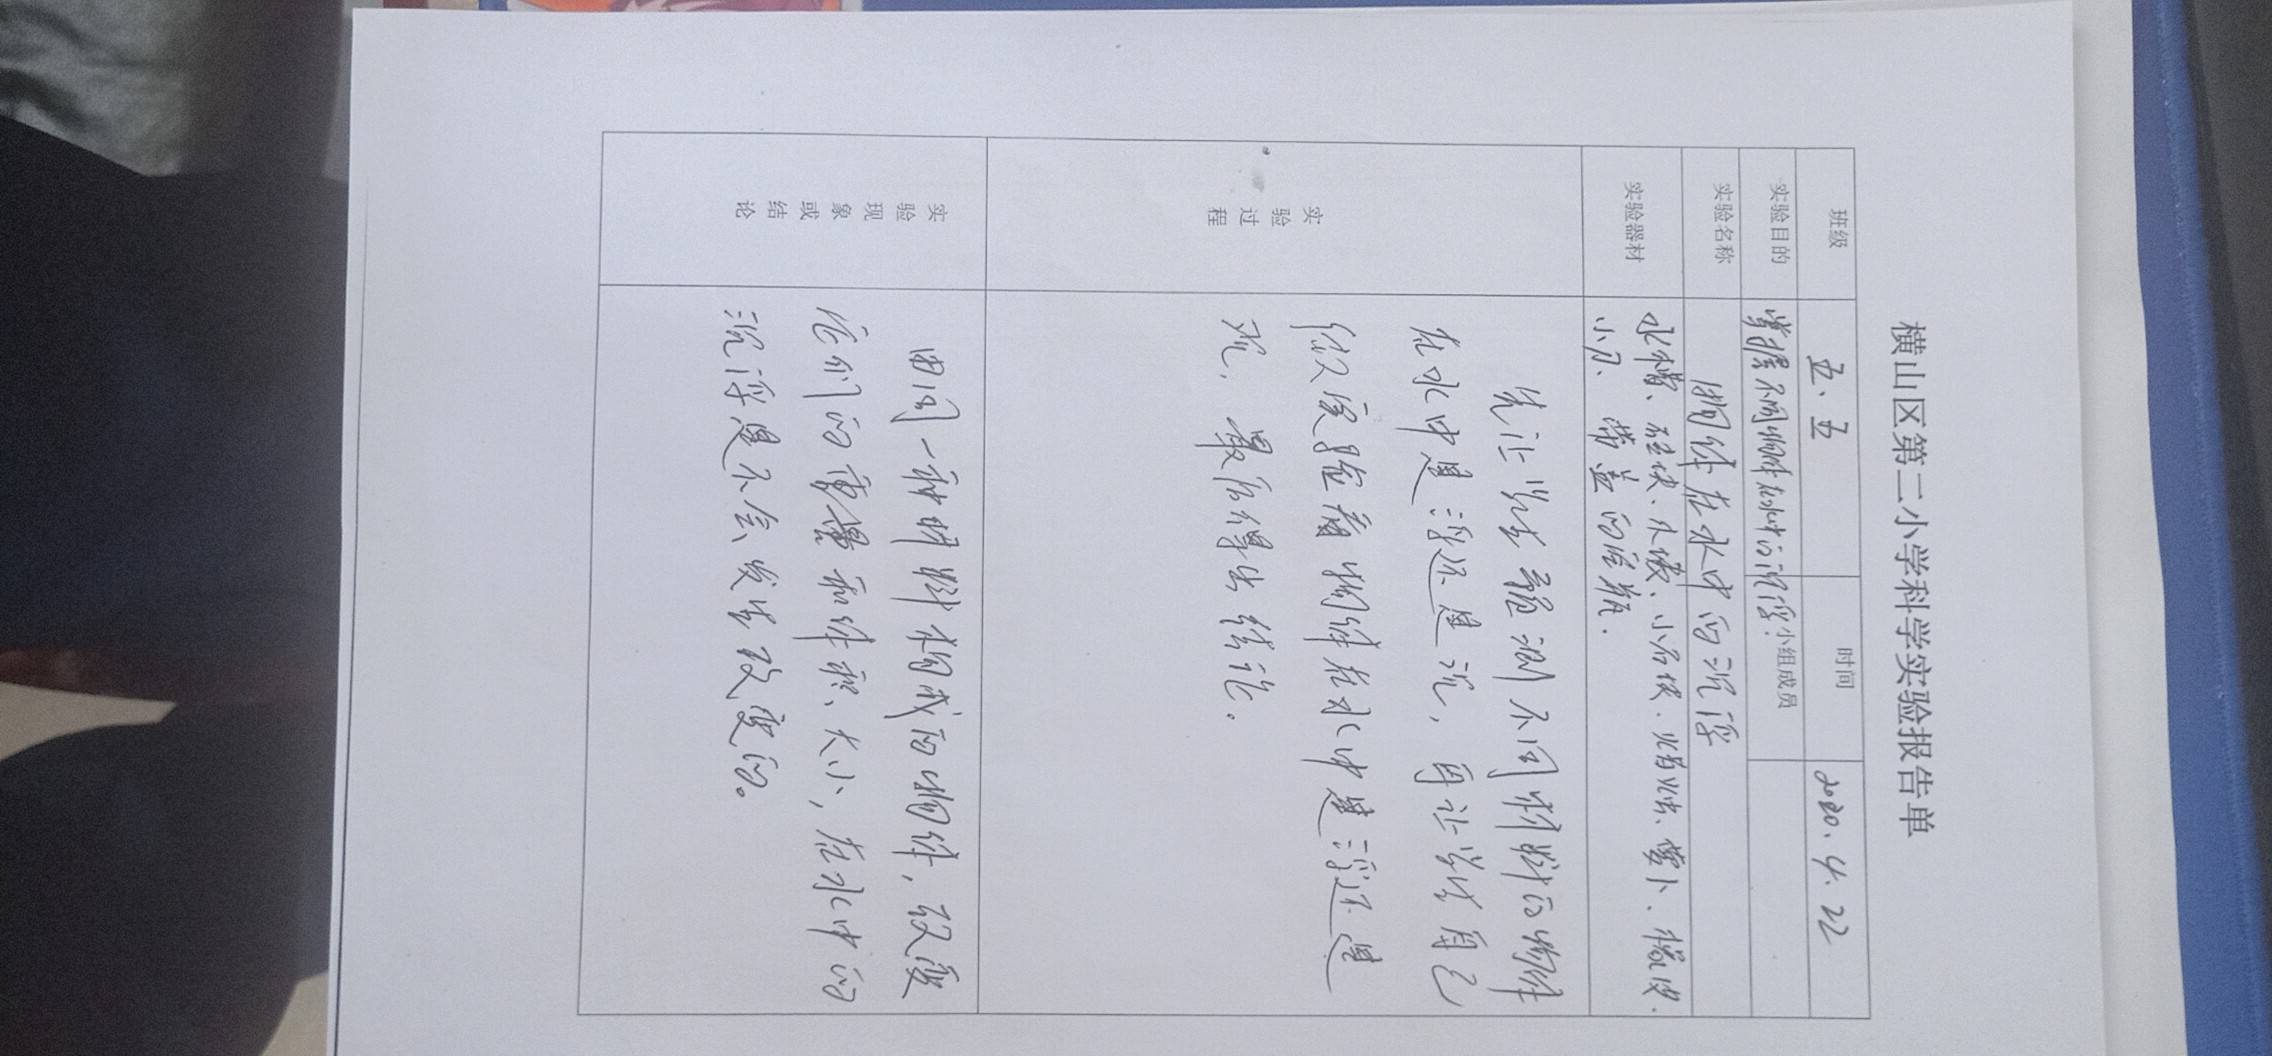 横山区第二小学科学实验报告单
班级 五.五 时间 2020.4.22
实验目的 掌握不同物体在水中的沉浮. 小组成员
实验名称 物体在水中的沉浮
实验器材 水槽、硅块、木块、小石块、萝卜、橡皮.
小刀、带盖的空瓶.
实验过程
先让学生预测不同材料的物体
在水中是浮还是沉，再让学生自己
做实验看物体在水中是浮还是
沉，最后得出结论。
实验现象或结论
由同一种材料构成的物体，改变
它们的重量和体积、大小，在水中的
沉浮是不会发生改变的。